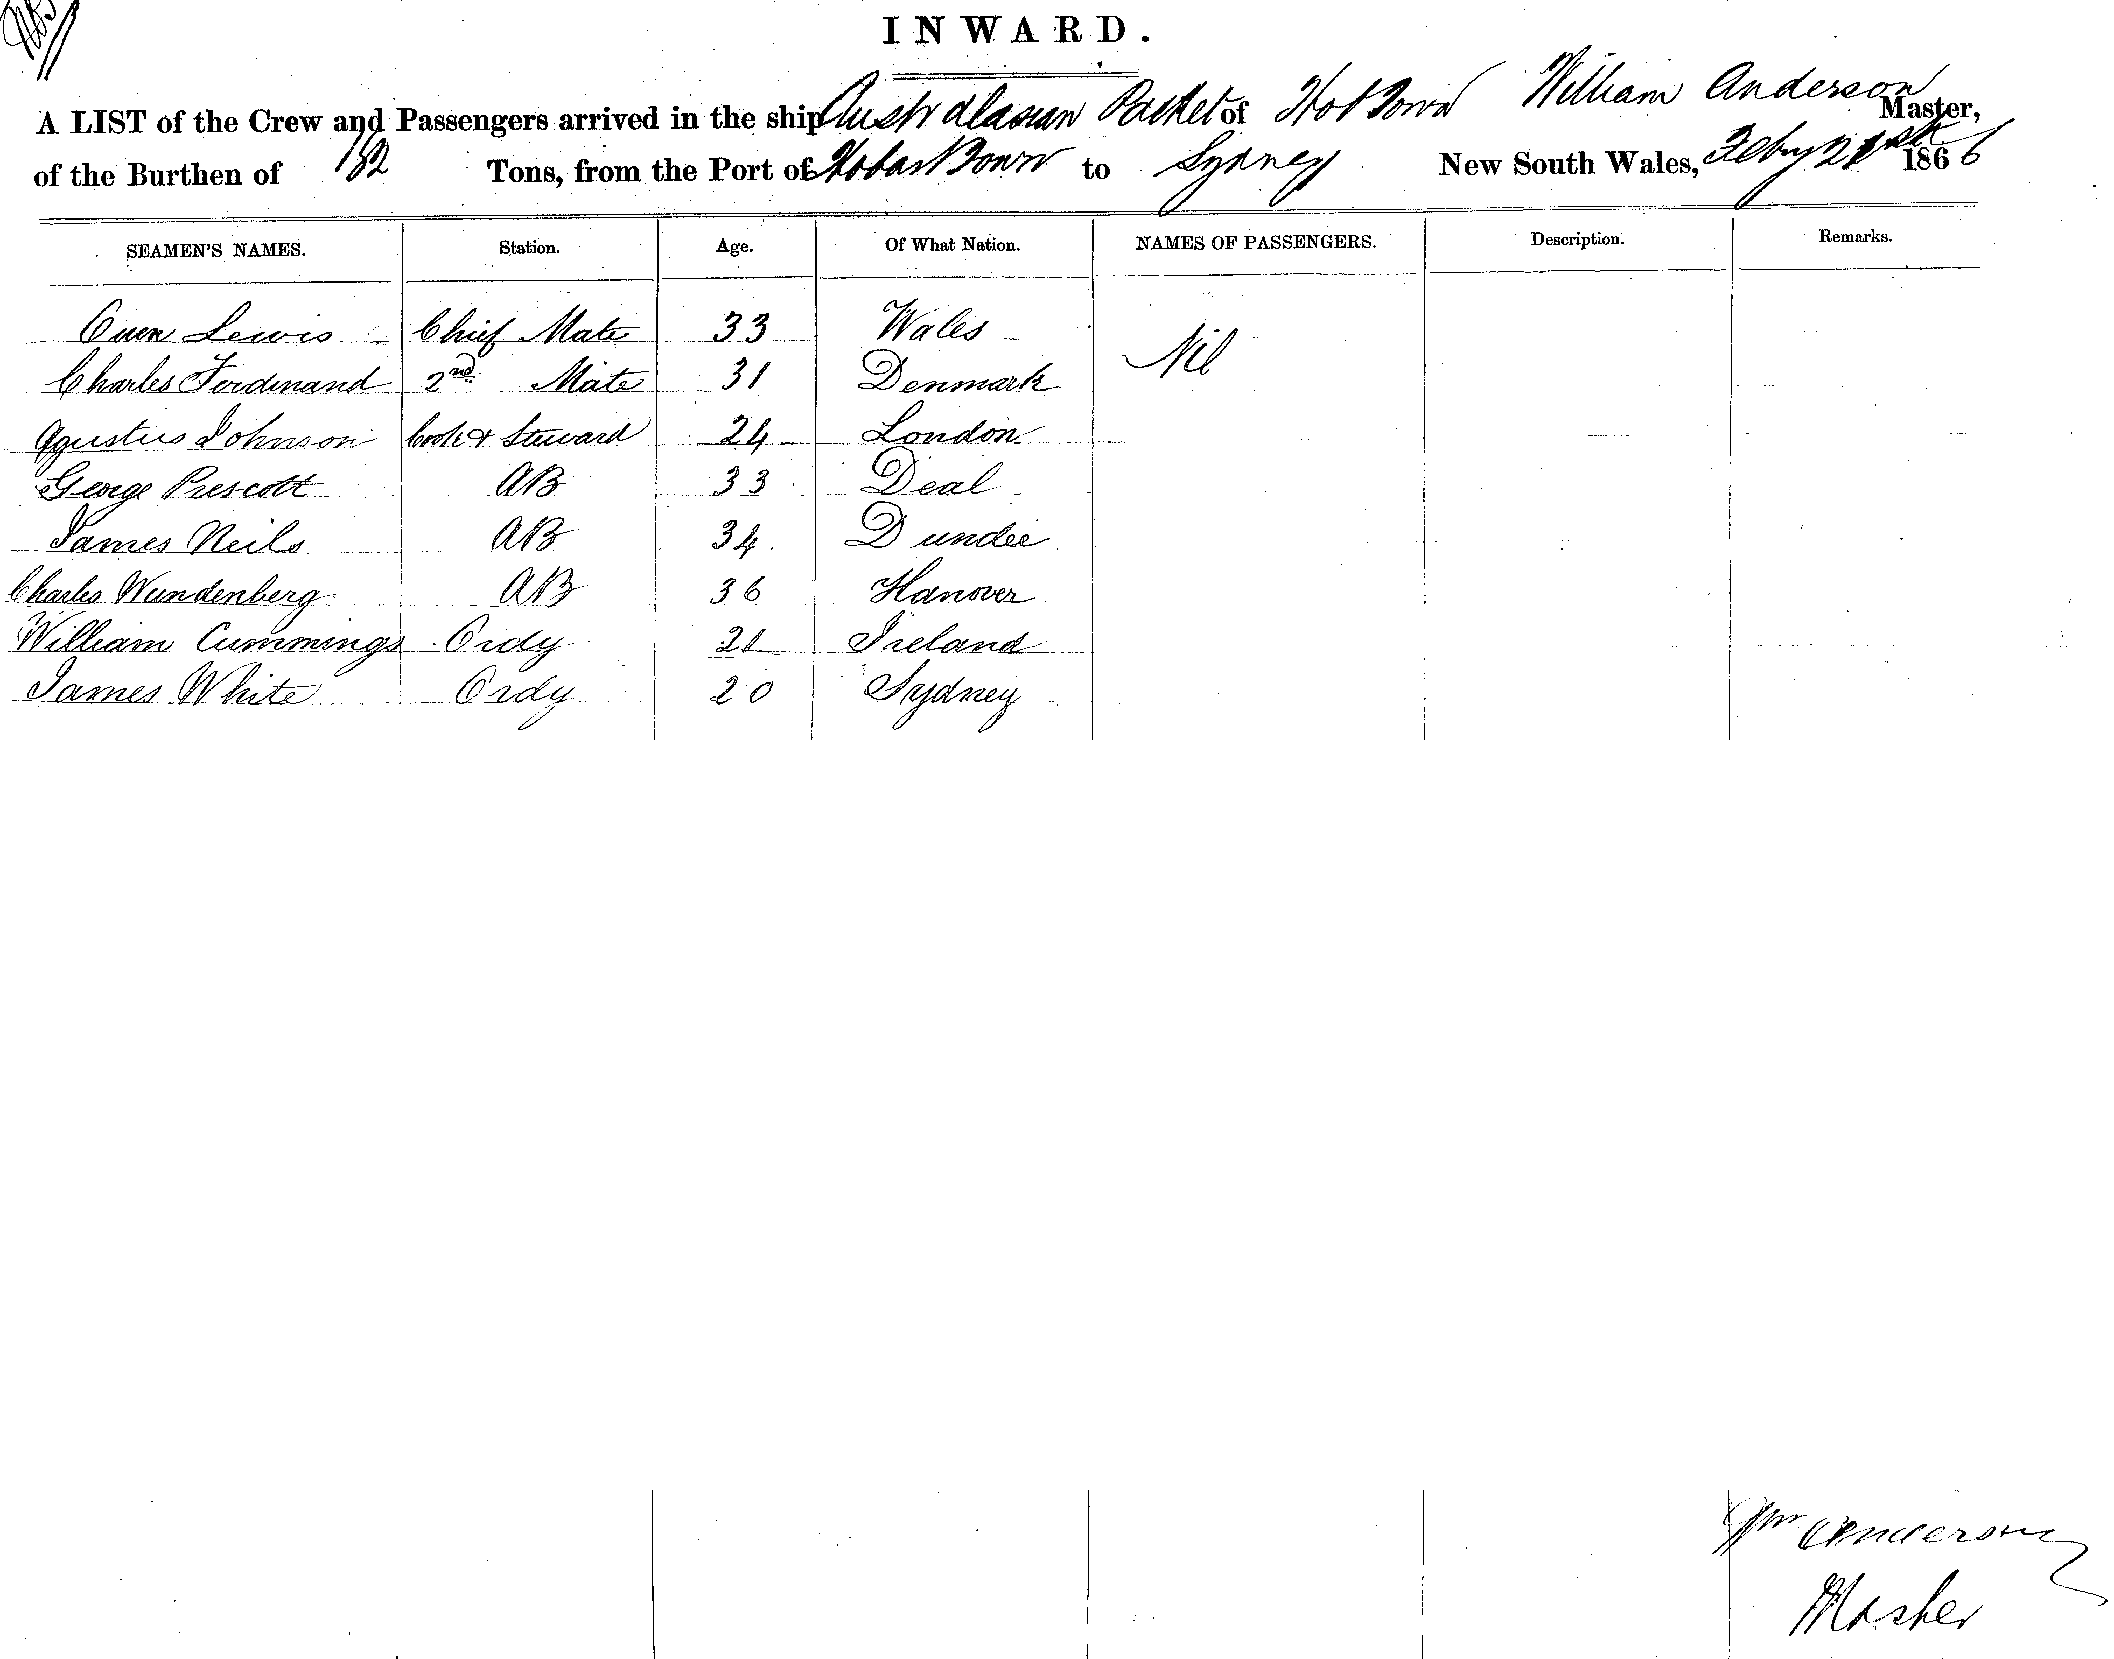 INWARD.
A LIST of the Crew and Passengers arrived in the ship Australasian Packet of Hobt Town William Anderson Master,
of the Burthen of 182 Tons, from the Port of Hobart Town to Sydney New South Wales, Feby 21st 1866
SEAMEN'S NAMES. Station. Age. Of What Nation. NAMES OF PASSENGERS. Description. Remarks.
Owen Lewis Chief Mate 33 Wales Nil
Charles Ferdinand 2nd Mate 31 Denmark
Agustus Johnson Cook & Steward 24 London
George Prescott AB 33 Deal
James Neils AB 34 Dundee
Charles Wundenberg AB 36 Hanover
William Cummings Ordy 21 Ireland
James White Ordy 20 Sydney
Wm Anderson
Master